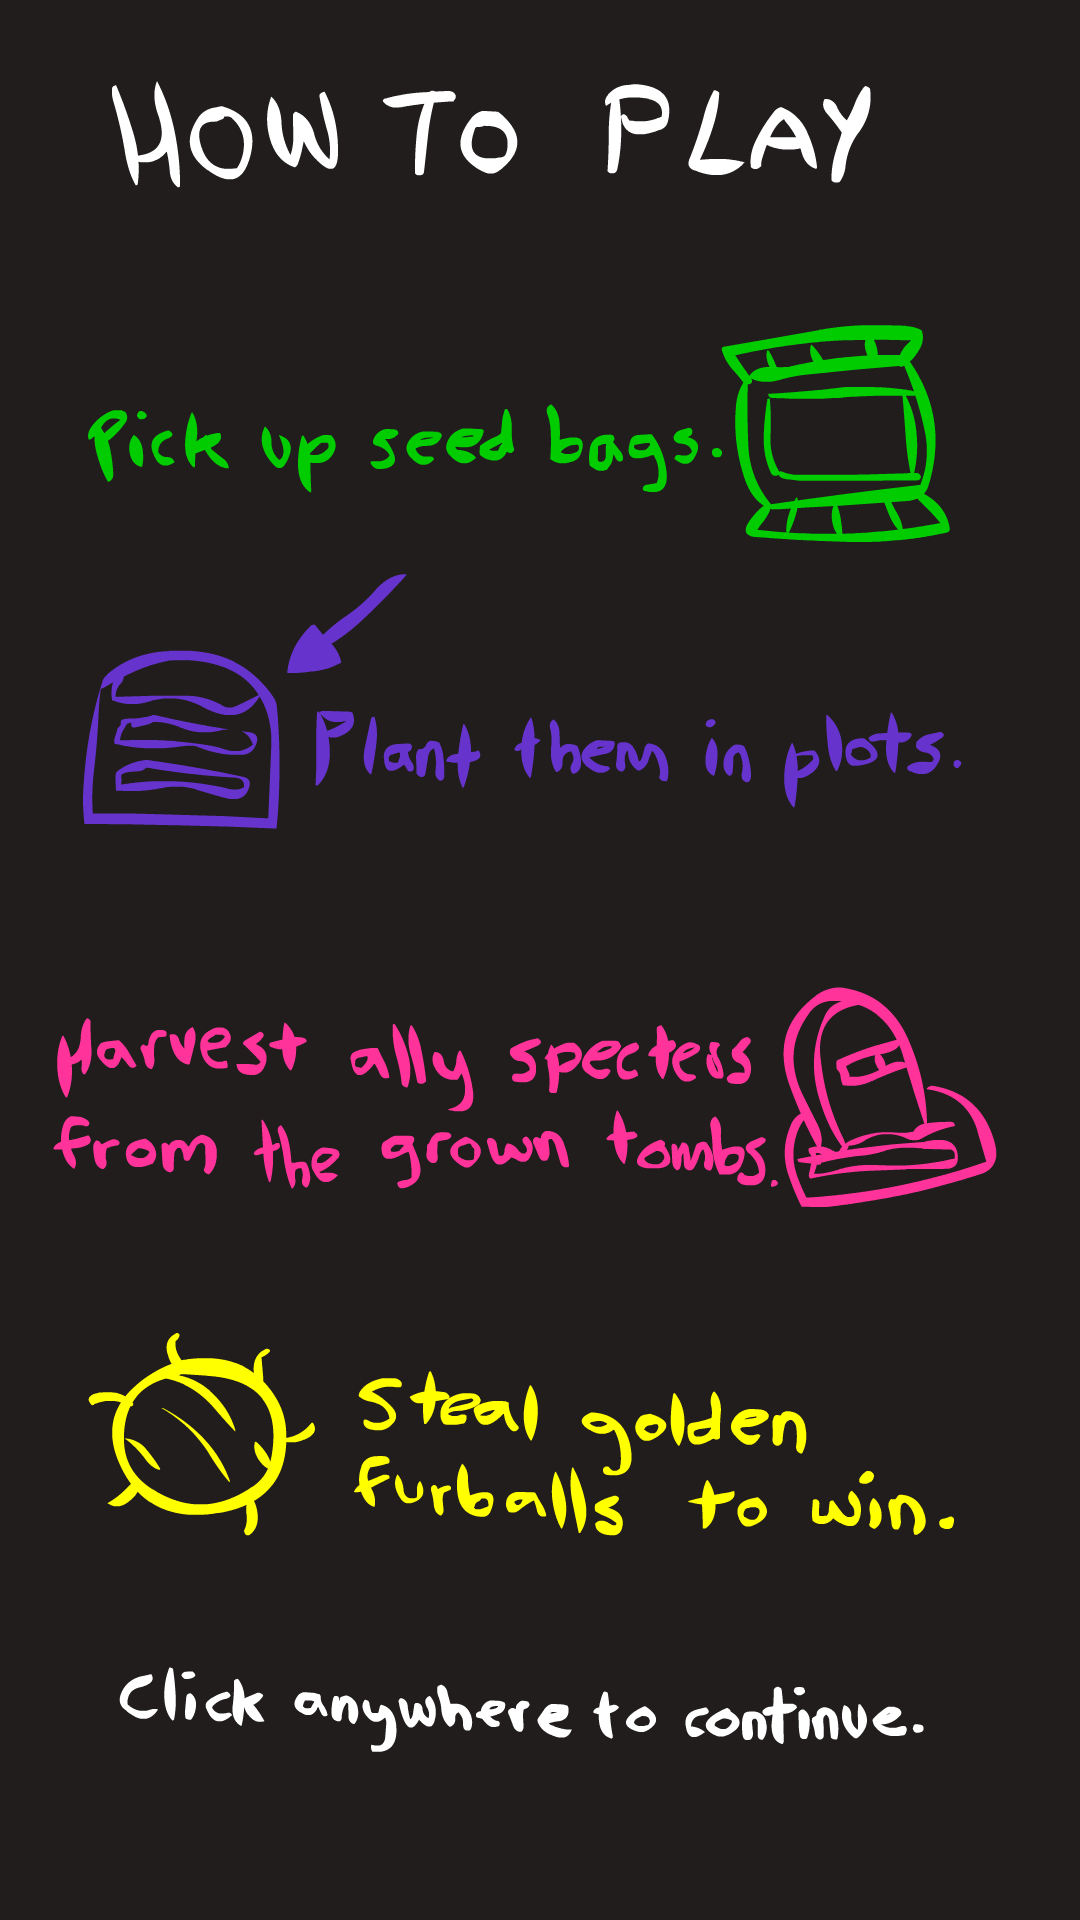 HOW TO PLAY
Pick up seed bags.
Plant them in plots.
Harvest ally specters
from the grown tombs.
Steal golden
furballs to win.
Click anywhere to continue.